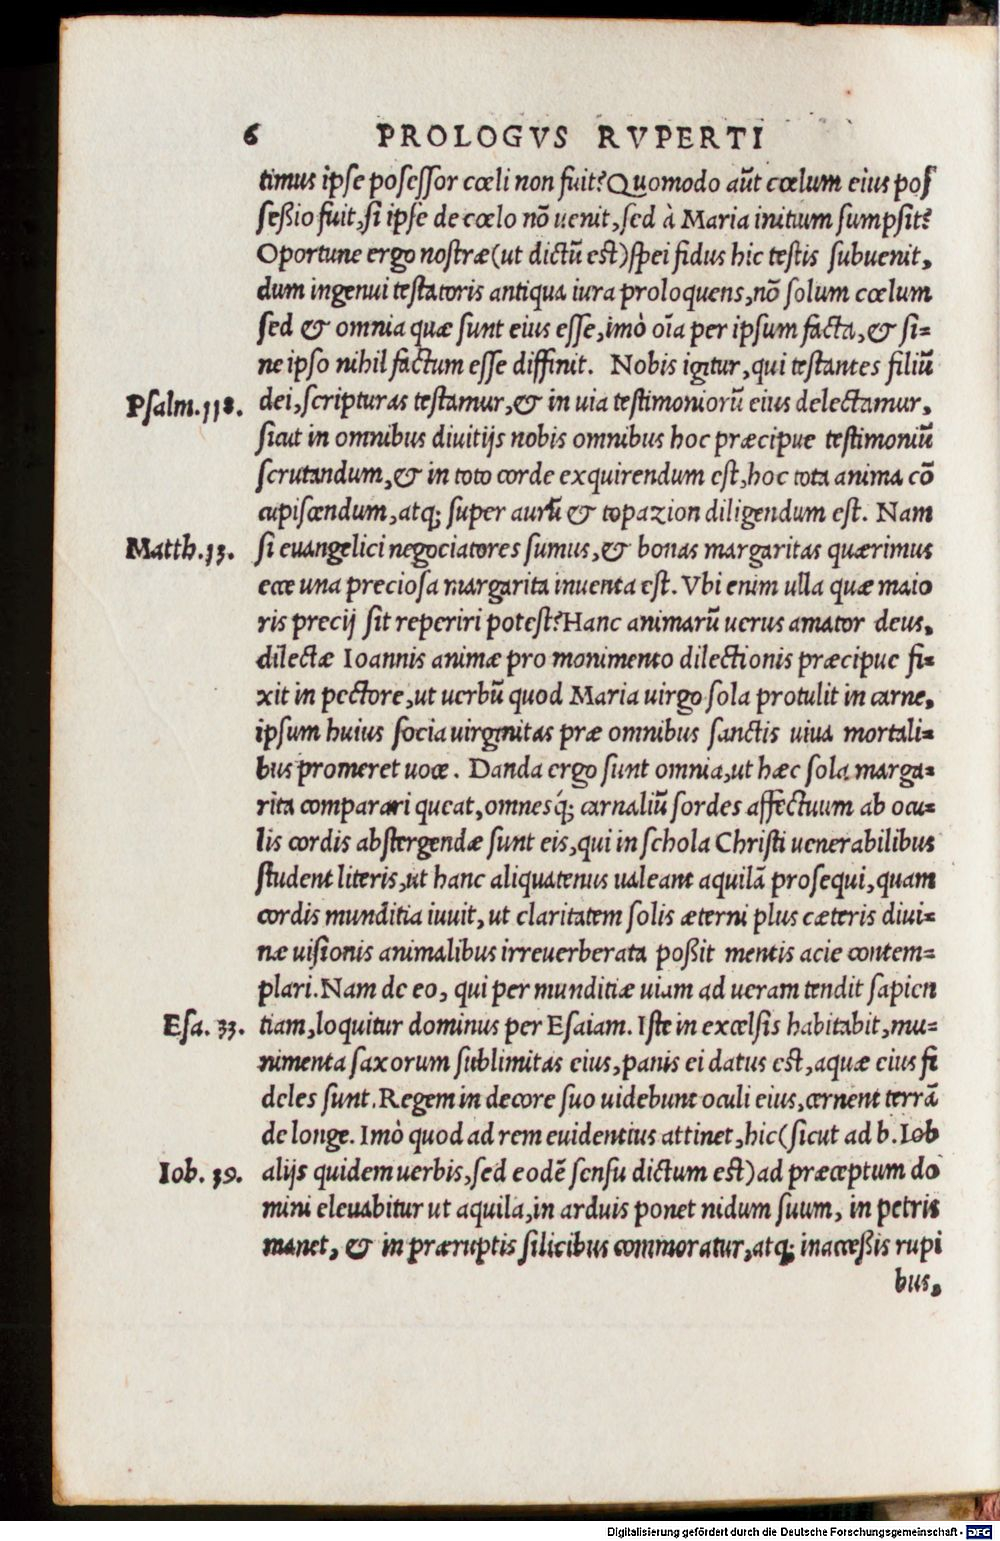 6 PROLOGVS RVPERTI
timus ipse posessor cœli non fuit? Quomodo aũt cœlum eius pos
seßio fuit, si ipse de cœlo nõ uenit, sed à Maria initium sumpsit?
Oportune ergo nostræ (ut dictũ est) spei fidus hic testis subuenit,
dum ingenui testatoris antiqua iura proloquens, nõ solum cœlum
sed & omnia quæ sunt eius esse, imò oĩa per ipsum facta, & si=
ne ipso nihil factum esse diffinit. Nobis igitur, qui testantes filiũ
Psalm.118. dei, scripturas testamur, & in uia testimoniorũ eius delectamur,
sicut in omnibus diuitijs nobis omnibus hoc præcipue testimoniũ
scrutandum, & in toto corde exquirendum est, hoc tota anima cõ
cupiscendum, atq; super aurũ & topazion diligendum est. Nam
Matth.13. si euangelici negociatores sumus, & bonas margaritas quærimus
ecce una preciosa margarita inuenta est. Vbi enim ulla quæ maio
ris precij sit reperiri potest? Hanc animarũ uerus amator deus,
dilectæ Ioannis animæ pro monimento dilectionis præcipue fi=
xit in pectore, ut uerbũ quod Maria uirgo sola protulit in carne,
ipsum huius socia uirginitas præ omnibus sanctis uiua mortali=
bus promeret uoce. Danda ergo sunt omnia, ut hæc sola marga=
rita comparari queat, omnesq́; carnaliũ sordes affectuum ab ocu=
lis cordis abstergendæ sunt eis, qui in schola Christi uenerabilibus
student literis, ut hanc aliquatenus ualeant aquilã prosequi, quam
cordis munditia iuuit, ut claritatem solis æterni plus cæteris diui=
næ uisionis animalibus irreuerberata poßit mentis acie contem=
plari. Nam de eo, qui per munditiæ uiam ad ueram tendit sapien
Esa. 33. tiam, loquitur dominus per Esaiam. Iste in excelsis habitabit, mu=
nimenta saxorum sublimitas eius, panis ei datus est, aquæ eius fi
deles sunt. Regem in decore suo uidebunt oculi eius, cernent terrã
de longe. Imò quod ad rem euidentius attinet, hic (sicut ad b. Iob
Iob. 39. alijs quidem uerbis, sed eodẽ sensu dictum est) ad præceptum do
mini eleuabitur ut aquila, in arduis ponet nidum suum, in petris
manet, & in præruptis silicibus commoratur, atq; inacceßis rupi
bus,
Digitalisierung gefördert durch die Deutsche Forschungsgemeinschaft - DFG